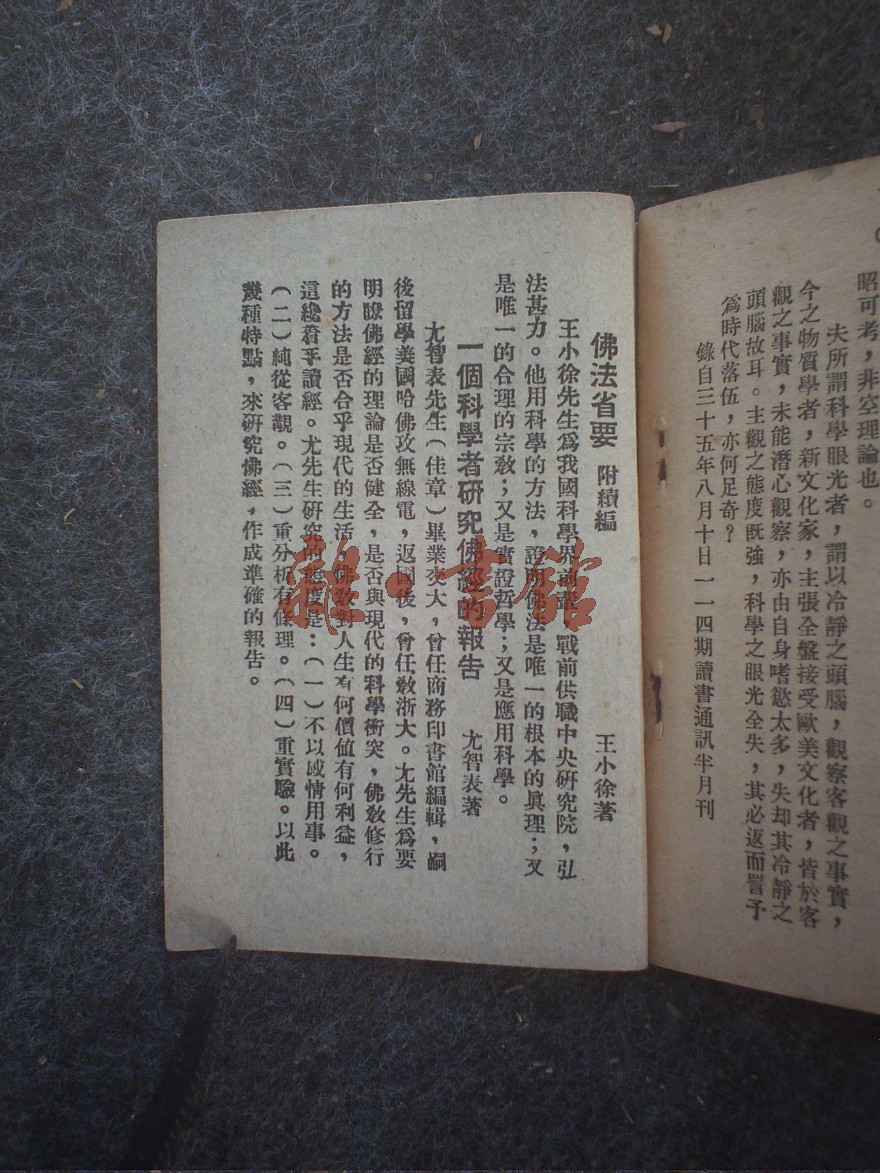 昭可考，非空理論也。
夫所謂科學眼光者，謂以冷靜之頭腦，觀察客觀之事實，
今之物質學者，新文化家，主張全盤接受歐美文化者，皆於客
觀之事實，未能潛心觀察，亦由自身嗜慾太多，失却其冷靜之
頭腦故耳。主觀之態度既強，科學之眼光全失，其必返而詈予
爲時代落伍，亦何足奇？
錄自三十五年八月十日一一四期讀書通訊半月刊
佛法省要 附續編 王小徐著
王小徐先生爲我國科學界前輩，戰前供職中央研究院，弘
法甚力。他用科學的方法，證明佛法是唯一的根本的眞理；又
是唯一的合理的宗敎；又是實證哲學；又是應用科學。
一個科學者研究佛經的報告 尤智表著
尤智表先生（佳章）畢業交大，曾任商務印書館編輯，嗣
後留學美國哈佛攻無線電，返國後，曾任敎浙大。尤先生爲要
明瞭佛經的理論是否健全，是否與現代的科學衝突，佛敎修行
的方法是否合乎現代的生活，佛敎對人生有何價值有何利益，
這纔着手讀經。尤先生研究的態度是：（一）不以感情用事。
（二）純從客觀。（三）重分析有條理。（四）重實驗。以此
幾種特點，來研究佛經，作成準確的報告。
雜小書館